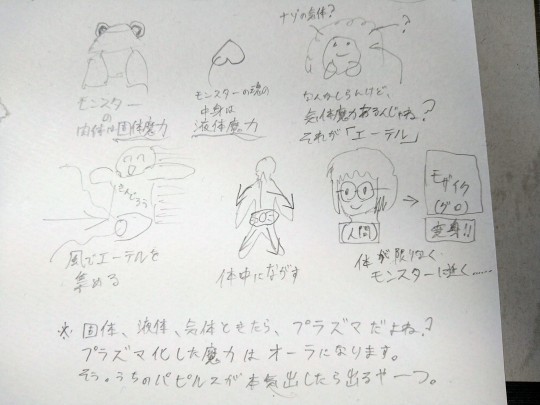 モンスター
の
肉体は固体魔力
モンスターの魂の
中身は
液体魔力
ナゾの気体?
?
なんかしらんけど、
気体魔力あるんじゃね?
それが「エーテル」
せんぷうろう
風でエーテルを
集める
SOS
体中にながす
人間
モザイク
(グロ)
変身!!
体が限りなく
モンスターに近く……
※固体、液体、気体ときたら、プラズマだよね?
プラズマ化した魔力はオーラになります。
そう。うちのパピルスが本気出したら出るやーつ。